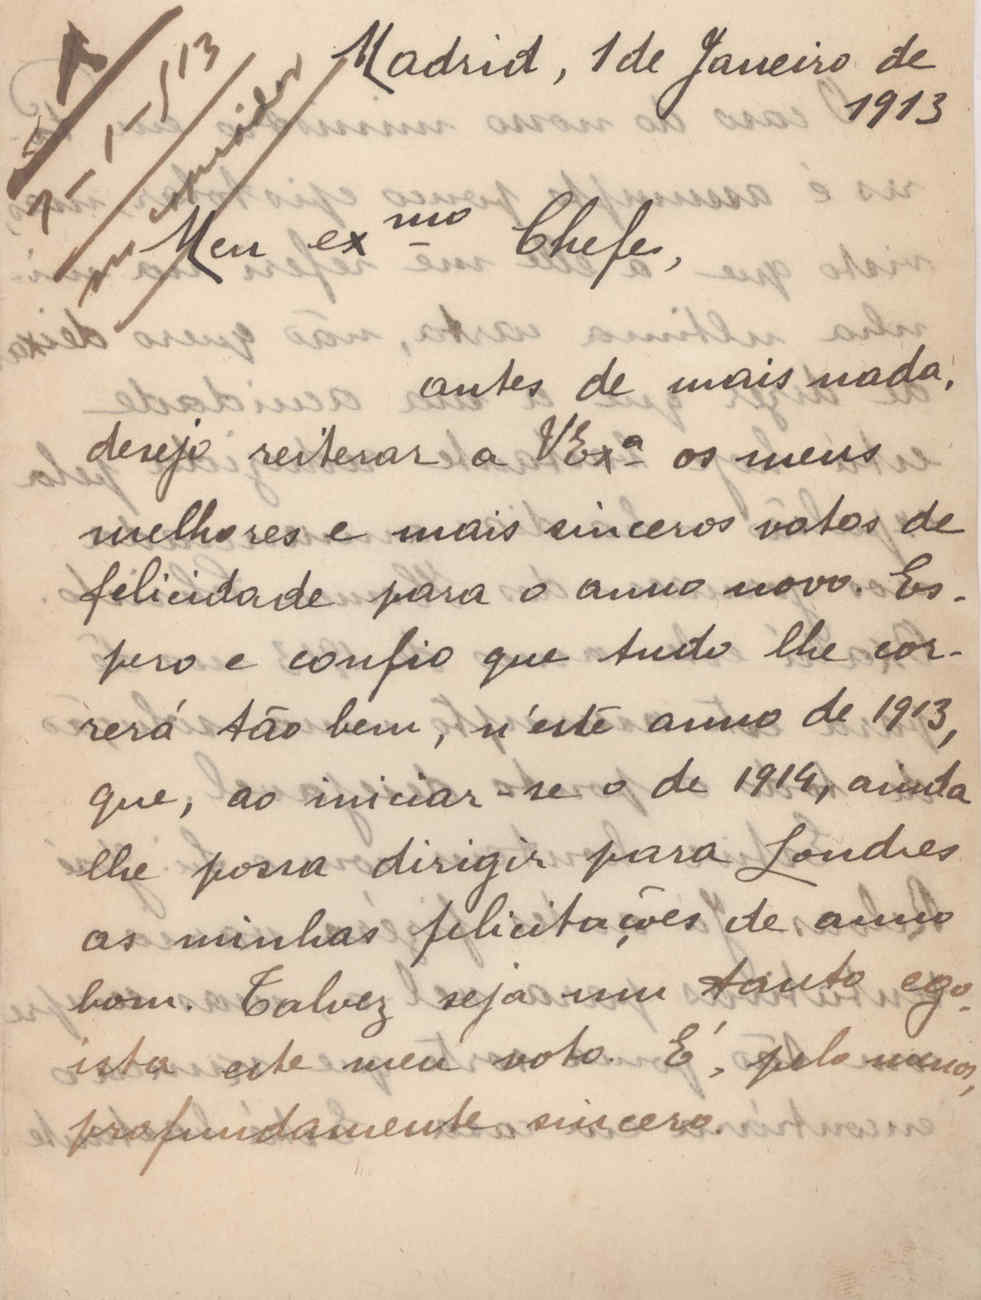 Madrid, 1 de Janeiro de
1913
Meu exmo Chefe,
antes de mais nada,
desejo reiterar a VExa os meus
melhores e mais sinceros votos de
felicidade para o anno novo. Es-
pero e confio que tudo lhe cor-
rerá tão bem, n'este anno de 1913,
que, ao iniciar-se o de 1914, ainda
lhe possa dirigir para Londres
as minhas felicitações de anno
bom. Talvez seja um tanto ego-
ista este meu voto. É, pelo menos,
profundamente sincero.